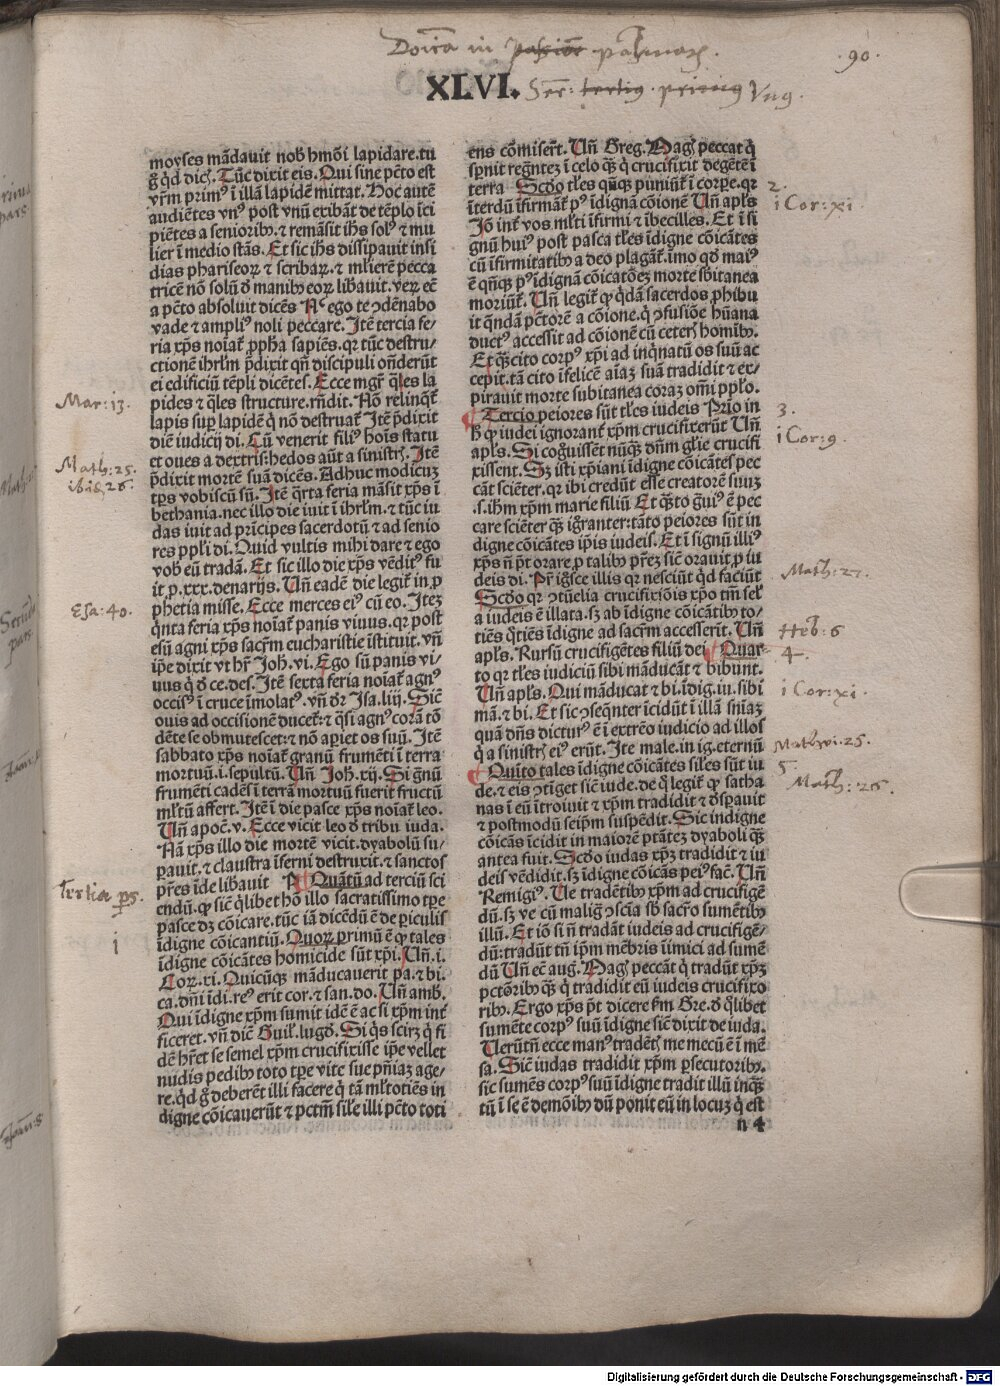 Doīca in passiōe palmarꝫ.
90.
XLVI. Ser: tertius. primus Vnꝰ.
moyses mādauit nob̄ hmōi lapidare. tu
g̊ qd̓ dic̄. Tūc dixit eis. Qui sine pc̄to est
vr̄m primꝰ ī illā lapidē mittat. Hoc autē
audiētes vnꝰ post vnū exibāt de tēplo īci
piētes a seniorib. ⁊ remāsit ih̄s solꝰ ⁊ mu
lier ī medio stās. Et sic ih̄s dissipauit insi
dias phariseoꝝ ⁊ scribaꝝ. ⁊ mlierē pecca
tricē nō solū d̓ manibꝰ eoꝝ libauit. veꝝ ec̄
a pc̄to absoluit dicēs Nec ego te ꝯdēnabo
vade ⁊ ampliꝰ noli peccare. Itē tercia fe/
ria xp̄s noīat̄ ꝓpha sapiēs. qꝛ tūc destru/
ctionē ihrlm̄ p̄dixit qn̄ discipuli on̄derūt
ei edificiū tēpli dicētes. Ecce mgr̄ q̄les la
pides ⁊ q̄les structure. rn̄dit. Nō relinq̄t̄
lapis sup lapidē q̓ nō destruat̄ Itē p̄dixit
diē iudicij di. Cū venerit filiꝰ hoīs statu
et oues a dextris: hedos aūt a sinistrꝭ. Itē
p̄dixit mortē suā dicēs. Adhuc modicuꝫ
tp̄s vobiscū sū. Itē q̄rta feria māsit xp̄s ī
bethania. nec illo die iuit ī ihrlm̄. ⁊ tūc iu
das iuit ad prīcipes sacerdotū ⁊ ad senio
res pp̄li di. Quid vultis mihi dare ⁊ ego
vob̄ eū tradā. Et sic illo die xp̄s vēditꝰ fu
it ꝓ. xxx. denarijs. Vn̄ eadē die legit̄ in ꝓ
phetia misse. Ecce merces eiꝰ cū eo. Iteꝫ
q̄nta feria xp̄s noīat̄ panis viuus. qꝛ post
esū agni xp̄s sacr̄m eucharistie īstituit. vn̄
ip̄e dixit vt hr̄ Joh̄. vi. Ego sū panis vi/
uus q̓ d̓ ce. des. Itē sexta feria noīat̄ agnꝰ
occisꝰ ī cruce īmolatꝰ. vn̄ dr̄ Isa. liij. Sic̄
ouis ad occisionē ducet̄: ⁊ q̄si agnꝰ corā tō
dēte se obmutescet: ⁊ nō apiet os suū. Itē
sabbato xp̄s noīat̄ granū frumēti ī terra
mortuū. i. sepultū. Vn̄ Joh̄. xij. Si g̊nū
frumēti cadēs ī terrā mortuū fuerit fructū
ml̄tū affert. Itē ī die pasce xp̄s noīat̄ leo.
Vn̄ apoc̄. v. Ecce vicit leo d̓ tribu iuda.
Nā xp̄s illo die mortē vicit. dyabolū su/
ꝑauit. ⁊ claustra īferni destruxit. ⁊ sanctos
pr̄es īde libauit Quātū ad terciū sci
endū. ꝙ sic̄ q̓libet hō illo sacratissimo tp̄e
pasce dꝫ cōicare. tūc iā dicēdū ē de ꝑiculis
īdigne cōicantiū. Quoꝝ primū ē ꝙ tales
īdigne cōicātes homicide sūt xp̄i. Vn̄. i.
Coꝝ. xi. Quicūqꝫ māducauerit pa. ⁊ bi.
ca. dn̄i īdi. reꝰ erit cor. ⁊ san. do. Vn̄ amb̄.
Qui īdigne xp̄m sumit idē ē ac si xp̄m int̄
ficeret. vn̄ dic̄ Guil̄. lugd̄. Si q̄s scirꝫ q̓ fi
dē hr̄et se semel xp̄m crucifixisse ip̄e vellet
nudis pedibꝰ toto tp̄e vite sue pn̄iaꝫ age/
re. qd̓ g̊ deberēt illi facere q̓ tā ml̄totiēs in
digne cōicauerūt ⁊ pctm̄ sil̄e illi pc̄to toti
ens cōmiser̄t. Vn̄ Greg. Magꝭ peccāt q̓
sꝑnit regn̄tez ī celo q̄ꝫ q̓ crucifixit degētē ī
terra Scd̓o tl̄es qn̄qꝫ puniūt̄ ī corꝑe. qꝛ
īterdū īfirmāt̄ ꝓꝰ īdignā cōionē Vn̄ apl̄s
Jō int̄ vos ml̄ti īfirmi ⁊ ībecilles. Et ī si
gnū huiꝰ post pasca tl̄es īdigne cōicātes
cū īfirmitatibꝰ a deo plagāt̄. imo qd̓ maiꝰ
ē qn̄qꝫ ꝓꝰ īdignā cōicatōeꝫ morte sb̄itanea
moriūt̄. Vn̄ legit̄ ꝙ q̄dā sacerdos ꝓhibu
it quendā pctōrē a cōione. q̓ ꝯfusiōe hūana
ductꝰ accessit ad cōionē cū ceterꝭ homībꝰ.
Et q̄ꝫcito corpꝰ xp̄i ad inq̄natū os suū ac
cepit. tā cito īfelicē aīaꝫ suā tradidit ⁊ ex/
pirauit morte subitanea coraꝫ om̄i pp̄lo.
Tercio peiores sūt tl̄es iudeis Primo in
hꝫ ꝙ iudei ignorant̄ xp̄m crucifixerūt Vn̄
apl̄s. Si cognouissent nūq̄ꝫ dn̄m gl̄ie crucifi
xissent. Sꝫ isti xp̄iani īdigne cōicātes pec
cāt sciēter. qꝛ ibi credūt esse creatorē suuꝫ
.s. ih̄m xp̄m marie filiū Et q̄ꝫto g̊uiꝰ ē pec
care sciēter q̄ꝫ ignoranter: tāto peiores sūt in
digne cōicātes ip̄is iudeis. Et ī signū illiꝰ
xp̄s n̄ p̄t orare ꝓ talibꝰ pr̄ez sic̄ orauit ꝓ iu
deis di. Pr̄ ignosce illis qꝛ nesciūt qd̓ faciūt
Scd̓o qꝛ ꝯtumelia crucifixiōis xp̄o tm̄ sel̄
a iudeis ē illata. sꝫ ab īdigne cōicātibꝰ to/
tiēs q̄tiēs īdigne ad sacr̄m accesserīt. Vn̄
apl̄s. Rursū crucifigētes filiū dei Quar-
to qꝛ tl̄es iudiciū sibi māducāt ⁊ bibunt.
Vn̄ apl̄s. Qui māducat ⁊ bi. īdig. iu. sibi
mā. ⁊ bi. Et sic ꝯseq̄nter īcidūt ī illā sn̄iaꝫ
quā dn̄s dicturꝰ ē ī extrēo iudicio ad illos
q̓ a sinistrꝭ eiꝰ erūt. Ite male. in ig. eternū
Quīto tales īdigne cōicātes sil̄es sūt iu
de. ⁊ eis ꝯtiget sic̄ iude. de q̓ legit̄ ꝙ satha
nas ī eū ītrouit ⁊ xp̄m tradidit ⁊ desꝑauit
⁊ postmodū seip̄m suspēdit. Sic indigne
cōicās īcidit in maiorē ptātez dyaboli q̄ꝫ
antea fuit. Scd̓o iudas xp̄ꝫ tradidit ⁊ iu
deis vēdidit. sꝫ īdigne cōicās peiꝰ fac̄. Vn̄
Remigiꝰ. Ve tradētibꝰ xp̄m ad crucifigē
dū. sꝫ ve cū malig̊ ꝯscīa sb̄ sacr̄o sumētibꝰ
illū. Et iō si n̄ tradāt iudeis ad crucifigē/
dū: tradūt tn̄ ip̄m mēbris īimici ad sumē
dū Vn̄ ec̄ aug̓. Magꝭ peccāt q̓ tradūt xp̄ꝫ
pctōribꝰ q̄ꝫ q̓ tradidit eū iudeis crucifixo
ribꝰ. Ergo xp̄s p̄t dicere ẜm Gre. d̓ q̓libet
sumēte corpꝰ suū īdigne sic̄ dixit de iuda.
Verūtn̄ ecce manꝰ tradētꝭ me mecū ē ī mē
sa. Sic̄ iudas tradidit xp̄m ꝑsecutoribꝰ.
sic sumēs corpꝰ suū īdigne tradit illū inq̄ꝫ
tū ī se ē demōibꝰ dū ponit eū in locuꝫ q̓ est
n 4
Mar: 13.
Math: 25.
ibidē 26.
Esa: 40.
Tertia ꝑs.
i
2.
i Cor: xi.
3.
i Cor: 9.
Math: 27.
Heb: 6
4.
i Cor: xi.
Mathei. 25.
5
Math: 26.
Digitalisierung gefördert durch die Deutsche Forschungsgemeinschaft - DFG